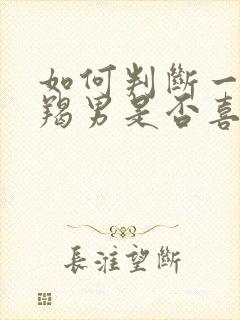 如何判斷一
羯男是否喜
長淮望斷